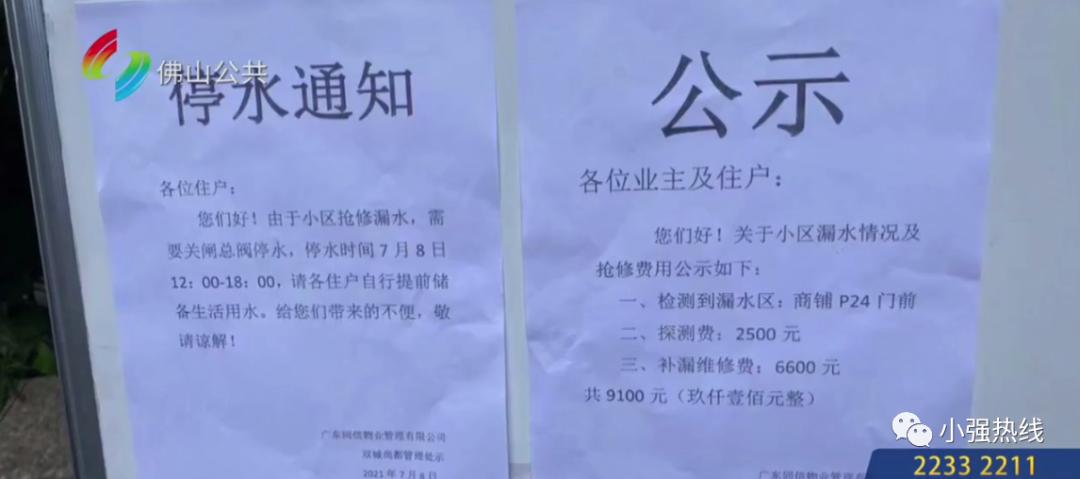 佛山公共
停水通知
各位住户：
您们好！由于小区抢修漏水，需
要关闸总阀停水，停水时间7月8日
12：00-18：00，请各住户自行提前储
备生活用水。给您们带来的不便，敬
请谅解！
广东回信物业管理有限公司
双城尚都管理处示
2021年7月8日
公示
各位业主及住户：
您们好！关于小区漏水情况及
抢修费用公示如下：
一、检测到漏水区：商铺P24门前
二、探测费：2500元
三、补漏维修费：6600元
共9100元（玖仟壹佰元整）
小强热线
2233 2211